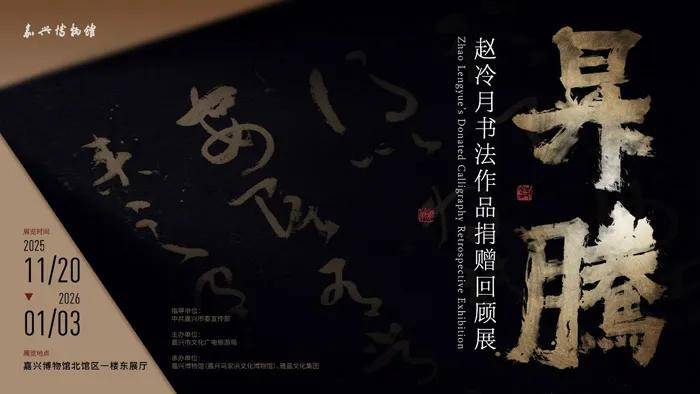 嘉兴博物馆
昇腾
赵冷月书法作品捐赠回顾展
Zhao Lengyue's Donated Calligraphy Retrospective Exhibition
展览时间
2025
11/20
2026
01/03
展览地点
嘉兴博物馆北馆区一楼东展厅
指导单位:
中共嘉兴市委宣传部
主办单位:
嘉兴市文化广电旅游局
承办单位:
嘉兴博物馆(嘉兴马家浜文化博物馆)、雅盛文化集团